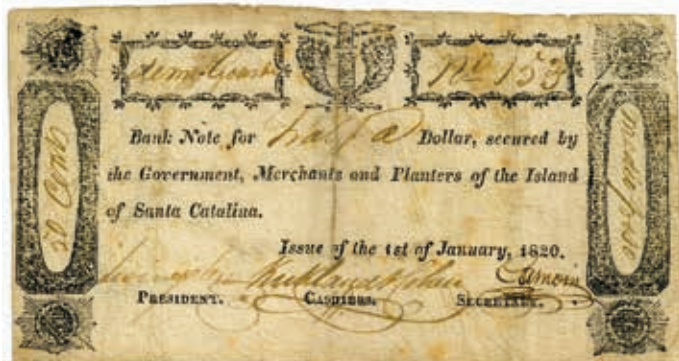 demi Gourde
No 153
50 Cents
Bank Note for half a Dollar, secured by
the Government, Merchants and Planters of the Island
of Santa Catalina.
Issue of the 1st of January, 1820.
PRESIDENT. CASHIERS. SECRETARY.
medio peso